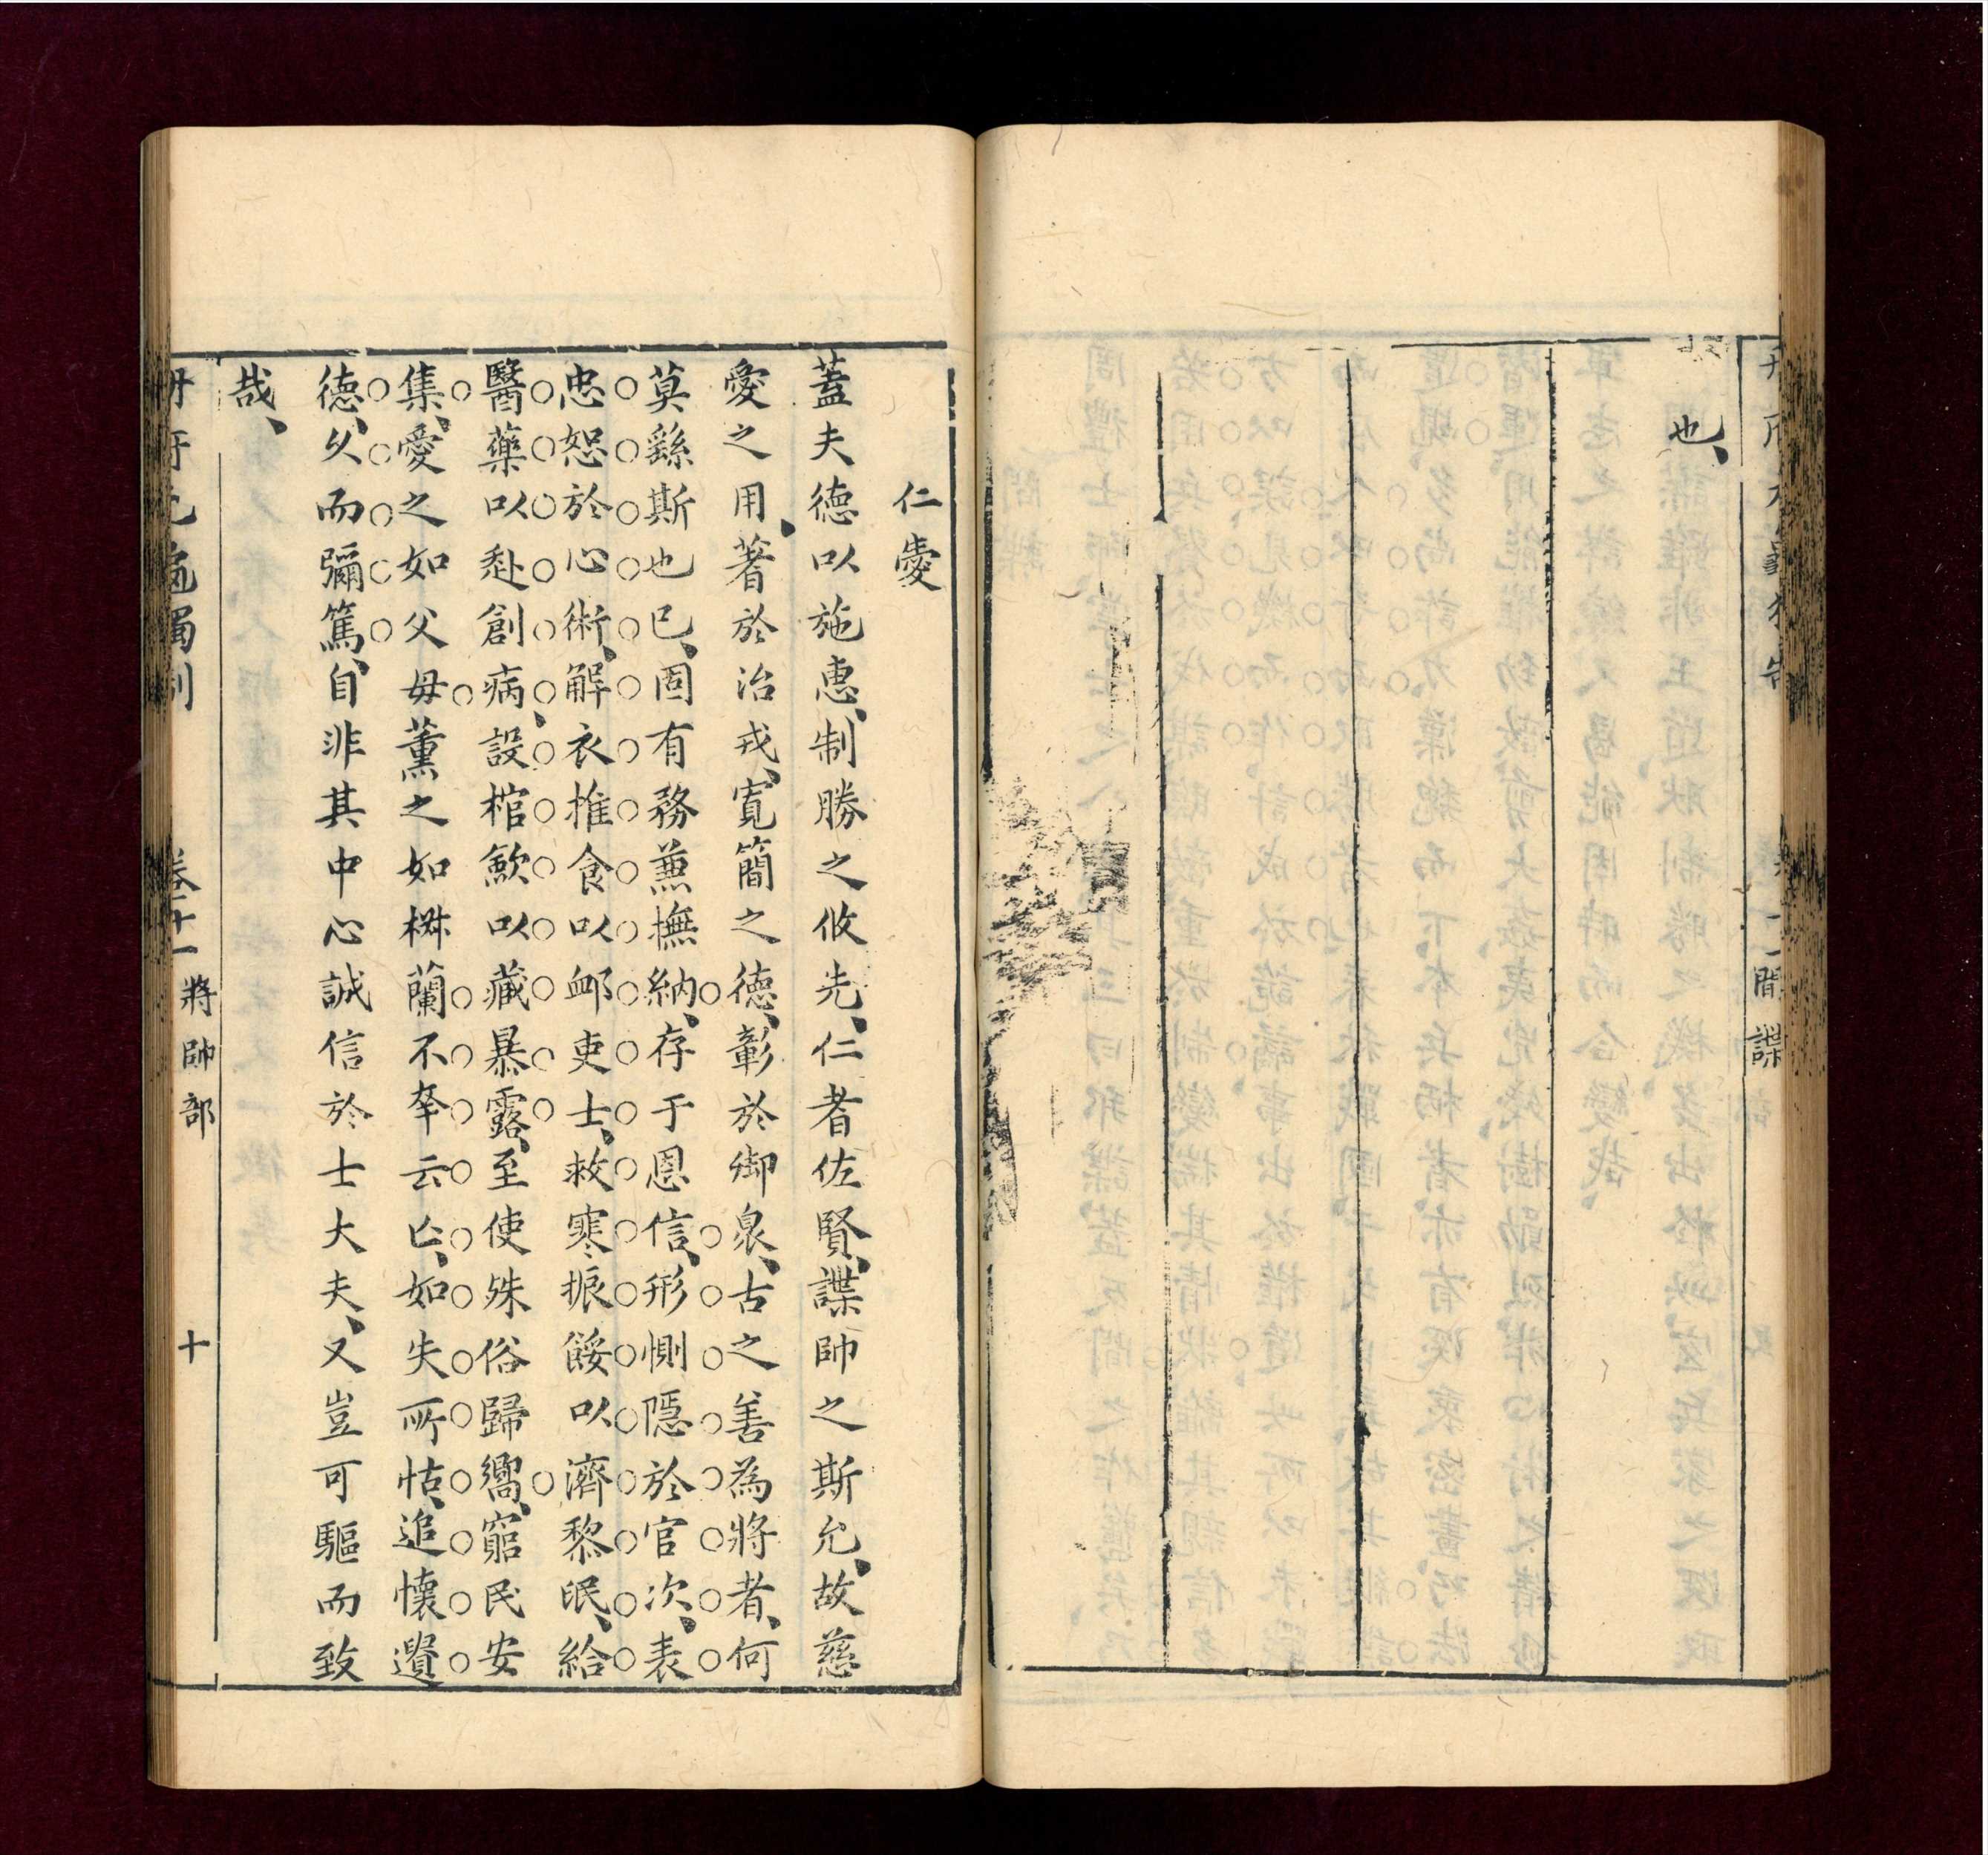 間諜
也、
仁愛
蓋夫德以施惠、制勝之攸先、仁者佐賢、謀帥之斯允、故慈
愛之用、著於治戎、寬簡之德、彰於御衆、古之善為將者、何
莫繇斯也已、固有務蕙撫納、存于恩信、形惻隱於官次、表
忠恕於心術、解衣推食以䘏吏士、救寒振餒以濟黎民、給
醫藥以赴創病、設棺歛以藏暴露、至使殊俗歸嚮、窮民安
集、愛之如父母薰之如椒蘭不幸云亡、如失所怙、追懷遺
德、久而彌篤、自非其中心誠信於士大夫、又豈可驅而致
哉、
卷十一 將帥部 十